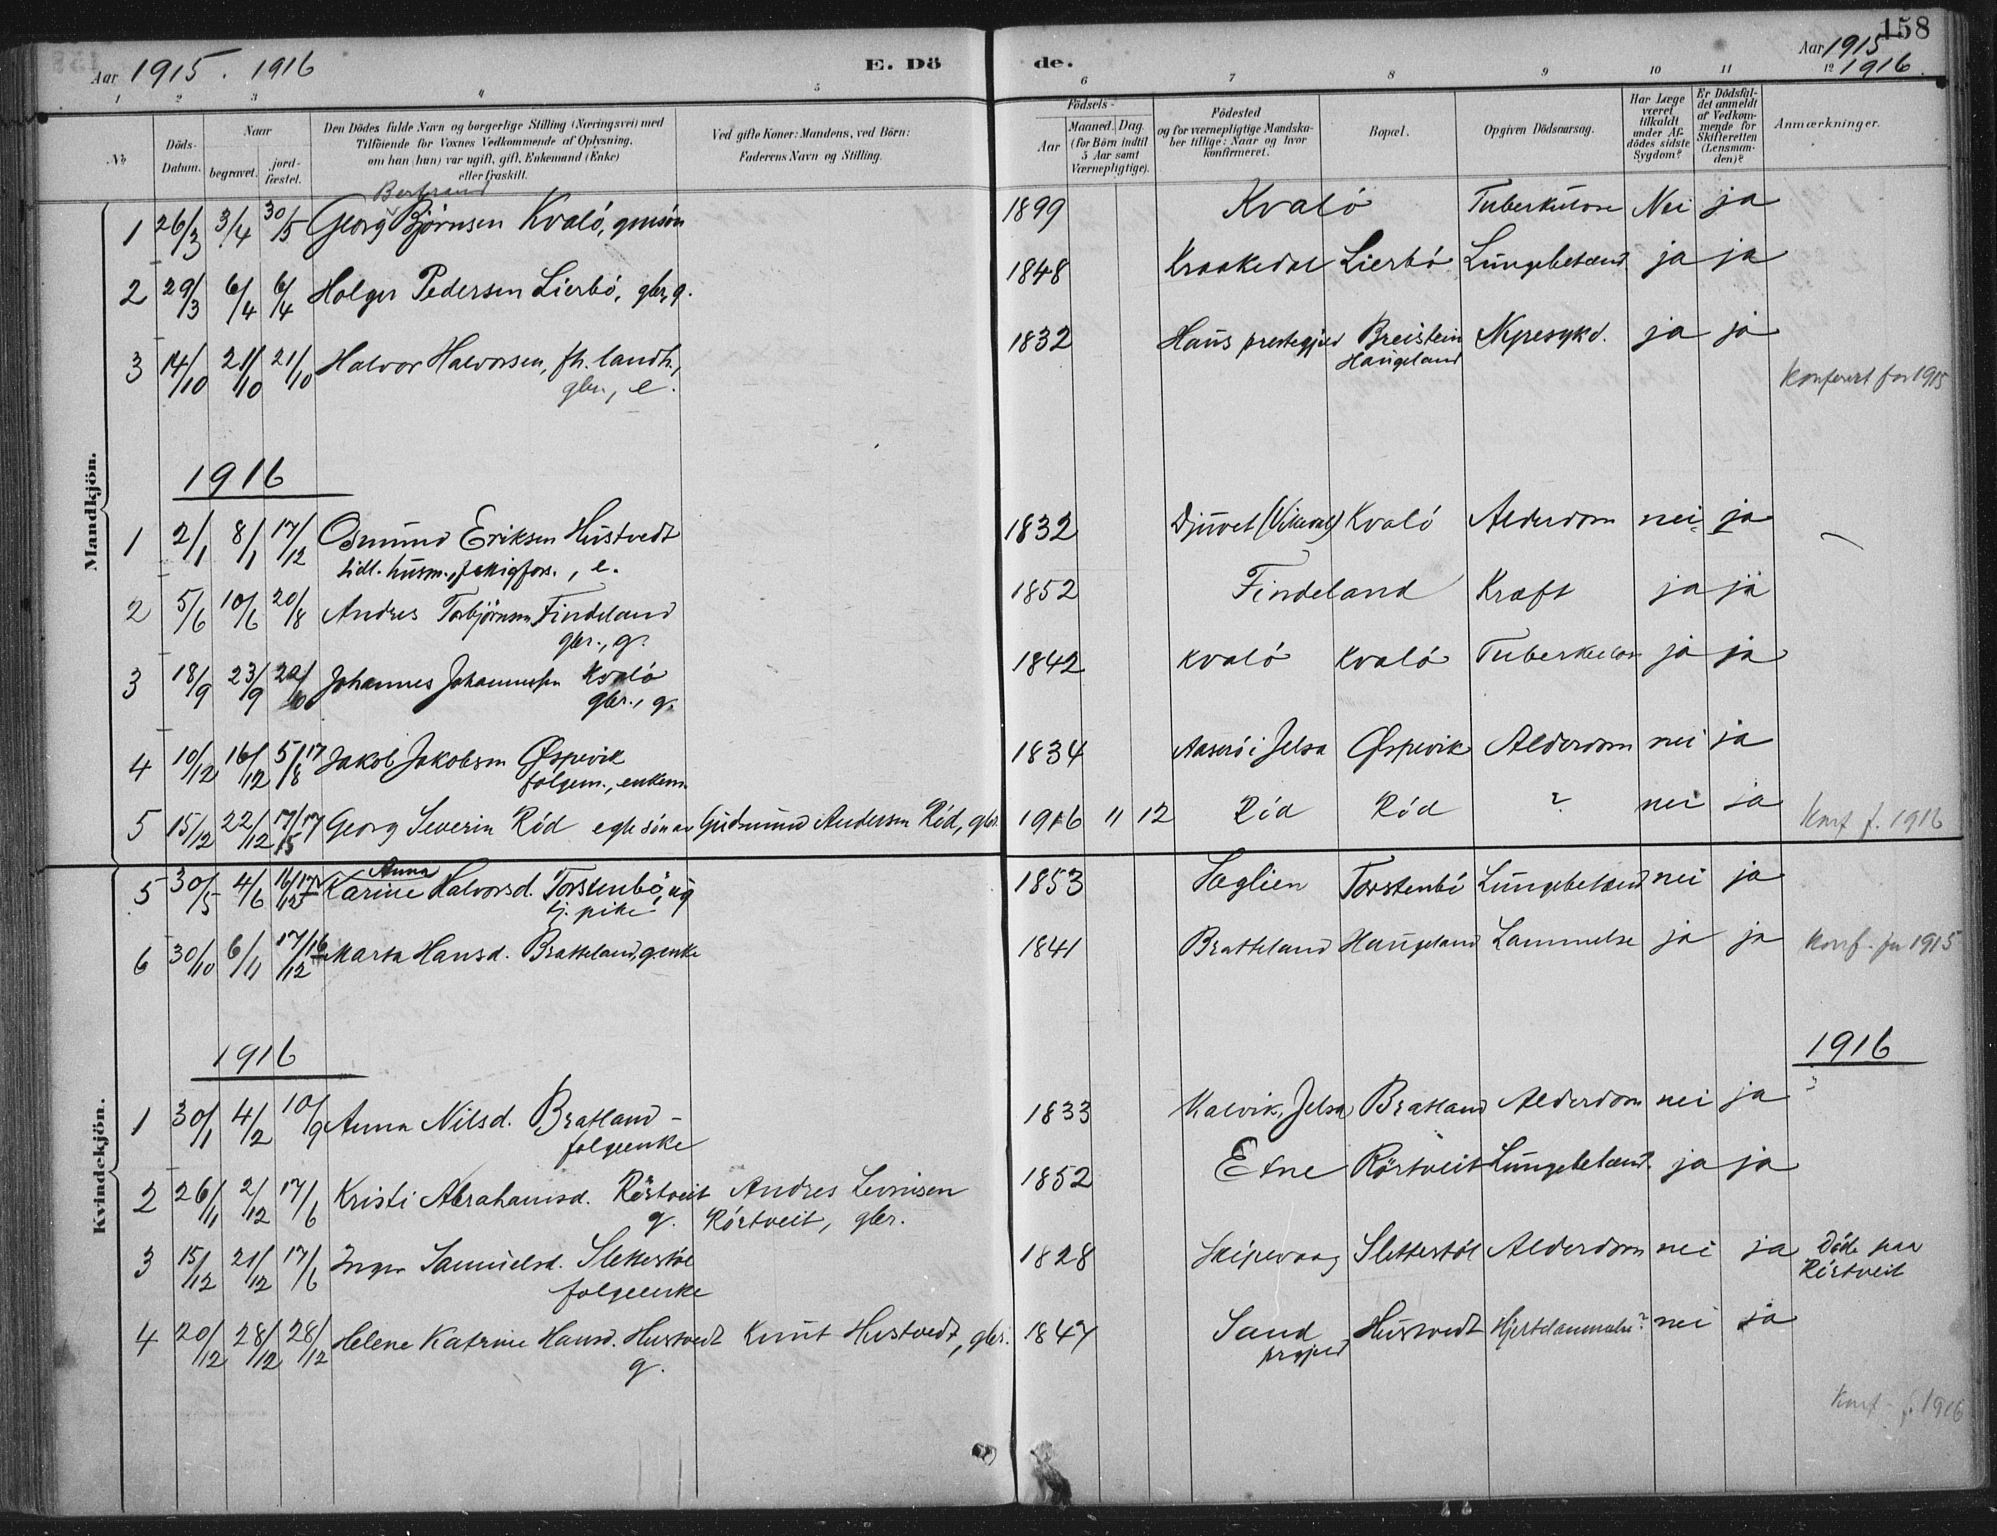 158
Aar 1915. 1916
E. Dö
de.
Aar 1915
1916
1 2 3 4 5 6 7 8 9 10 11 12
№
Döds-
Datum.
Naar
begravet.
jord-
fæstet.
Den Dödes fulde Navn og borgerlige Stilling (Næringsvei) med
Tilföiende for Voxnes Vedkommende af Oplysning,
om han (hun) var ugift, gift, Enkemand (Enke)
eller fraskilt.
Ved gifte Koner: Mandens, ved Börn:
Faderens Navn og Stilling.
Födsels-
Aar
Maaned. Dag.
(for Börn indtil
5 Aar samt
Værnepligtige).
Födested
og for værnepligtige Mandska-
ber tillige: Naar og hvor
konfirmeret.
Bopæl.
Opgiven Dödsaarsag.
Har Læge
været
tilkaldt
under Af-
dödes sidste
Sygdom?
Er Dödsfal-
det anmeldt
af Vedkom-
mende for
Skifteretten
(Lensman-
den)?
Anmærkninger.
Mandkjön.
Bertrand
1 26/3 3/4 30/5 Georg Björnsen Kvaló, gmsön 1899 Kvaló Tuberkulose Nei ja
2 29/3 6/4 6/4 Holger Pedersen Lierbó, gbr, g. 1848 Kraakedal Lierbó Lungebetænd. ja ja
3 14/10 21/10 21/10 Halvor Halvorsen, fh. landh., 1832 Haus prestegjeld Breistein Nyresykd. ja ja
gbr., e. Haugeland
Konferert for 1915
1916
1 2/1 8/1 17/12 Osmund Eriksen Hustvedt 1832 Djuvet (Vikeval) Kvaló Alderdom nei ja
tidl. husm., e.
2 5/6 10/6 20/8 Andres Torbjörnsen Findeland 1852 Findeland Kræft ja ja
gbr., g.
3 18/9 23/9 Johannes Johannessen Kvaló 1842 Kvaló Kvaló Tuberkulos ja ja
gbr., g.
4 10/12 16/12 5/8 17 Jakob Jakobsen Øspevik 1834 Aaseró i Jelsa Øspevik Alderdom nei ja
folgem., enkem.
5 15/12 22/12 17/5 17 Georg Severin Ród egte sön av Gudmund Andersen Ród, gbr. 1916 11 12 Ród Ród ? nei ja Konf f. 1916
Kvindekjön.
Anna
5 30/5 4/6 16/12 Karine Halvorsd. Torstenbó, ug 1853 Saglien Torstenbó Lungebetænd nei ja
tj. pike
6 30/10 6/11 17/12 16 Marta Hansd. Bratteland, genke 1841 Bratteland Haugeland Lammelse ja ja Konf. for 1915
1916
1916
1 30/1 4/2 10/9 Anna Nilsd. Bratland - 1833 Kalvik, Jelsa Bratland Alderdom nei ja
folgeenke
2 26/11 2/12 17/6 Kristi Abrahamsd. Rörtveit Andres Levnisen 1852 Etne Rörtveit Lungebetænd. ja ja
g. Rörtveit, gbr.
3 15/12 21/12 17/6 Inger Samuelsd. Slettestöl 1828 Skipevaag Slettestöl Alderdom nei ja Döde paa
folgeenke Rörtveit
4 20/12 28/12 28/12 Helene Katrine Hansd. Hustvedt Knut Hustvedt, gbr. 1847 Sand Hustvedt Hjertelammelse? nei ja
g. prgjeld
Konf. f. 1916